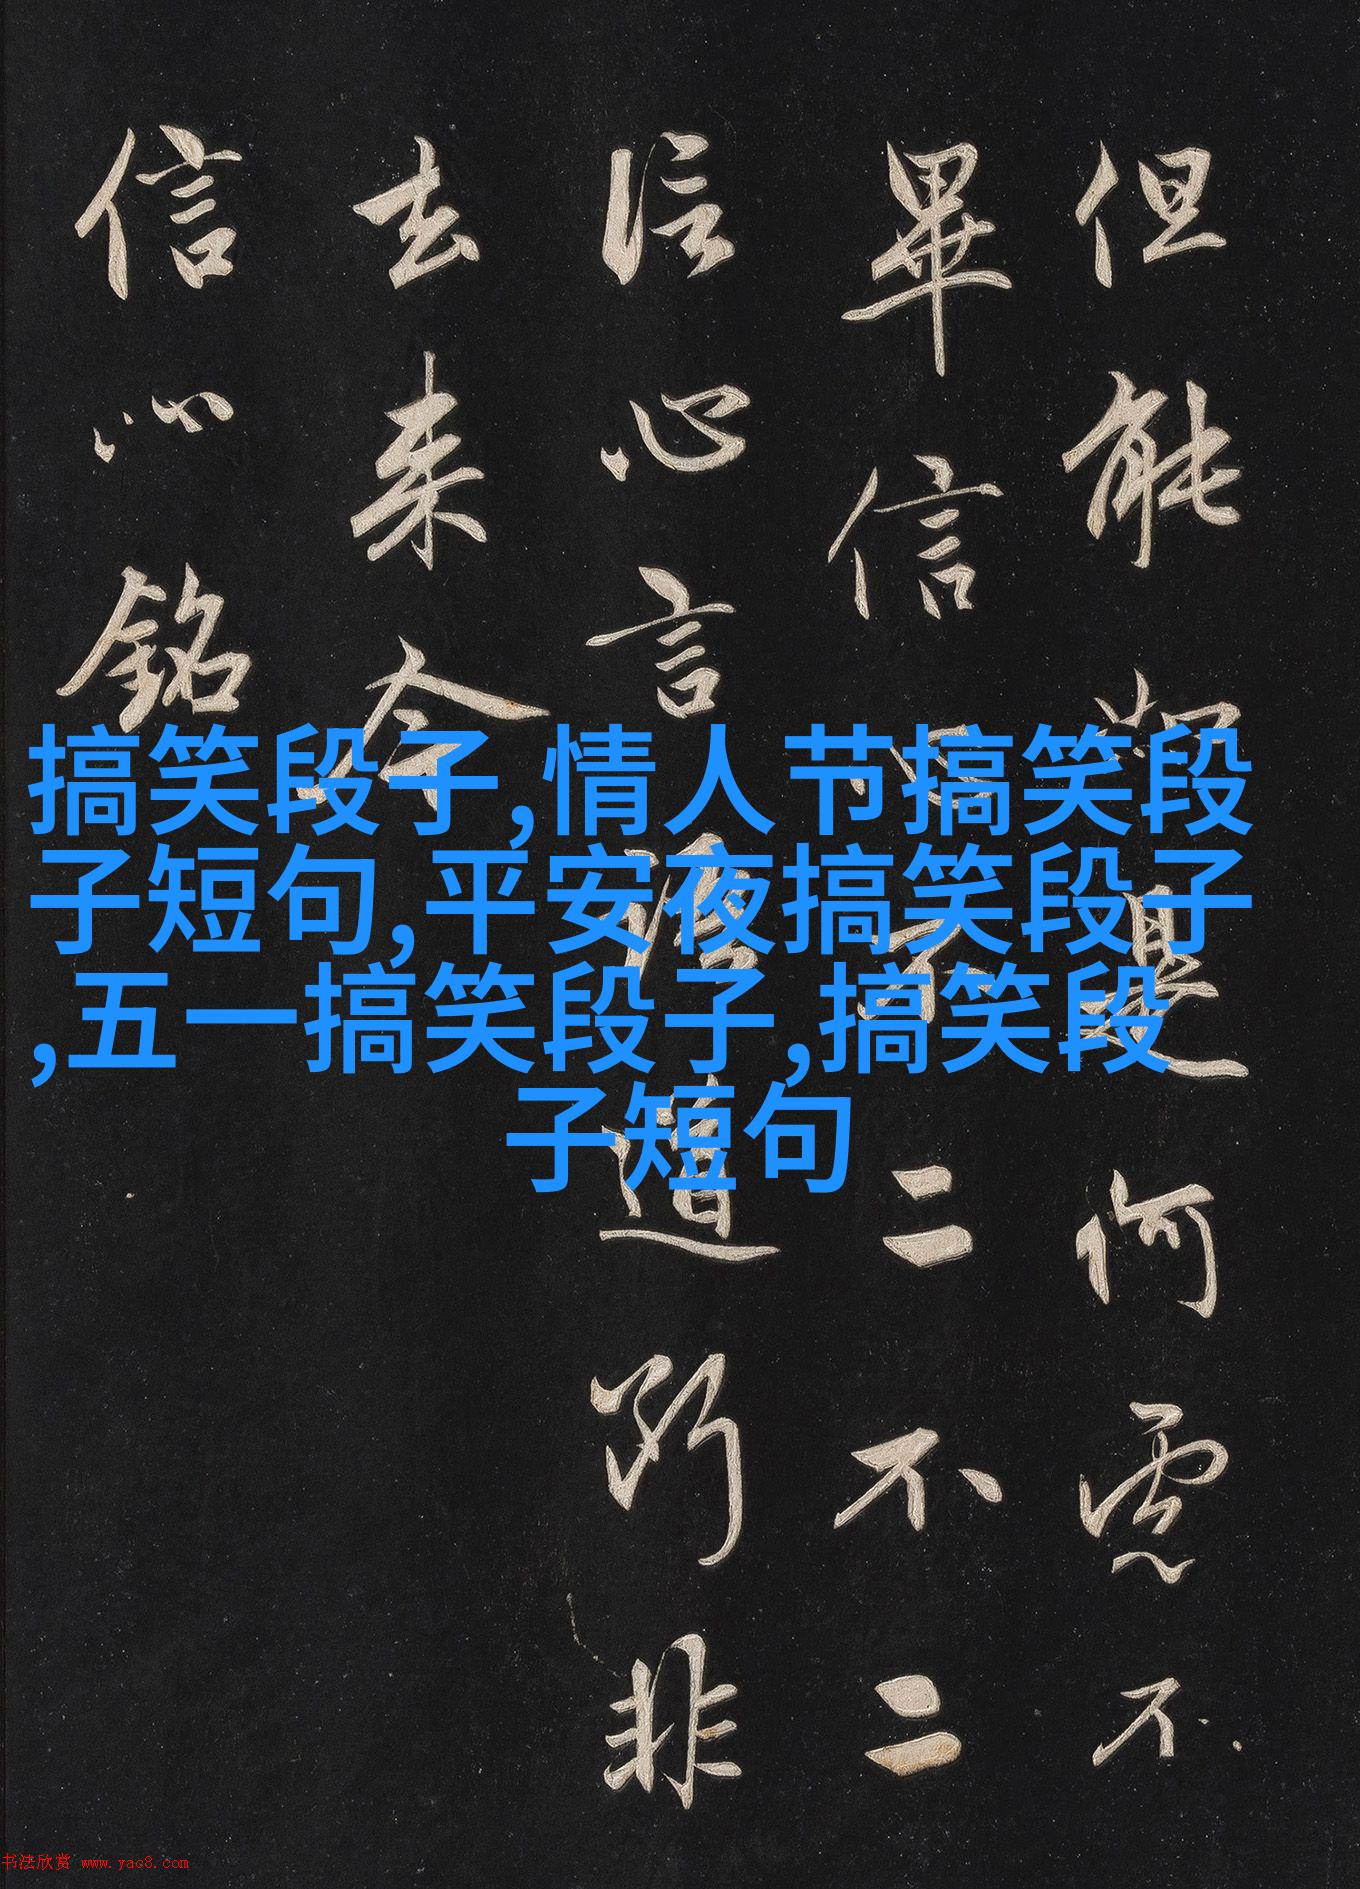 但能如是何慮不
畢信心不二不二
信心言語道斷非
去來今
信心銘
搞笑段子,情人节搞笑段
子短句,平安夜搞笑段子
,五一搞笑段子,搞笑段
子短句
书法欣赏 www.yac8.com